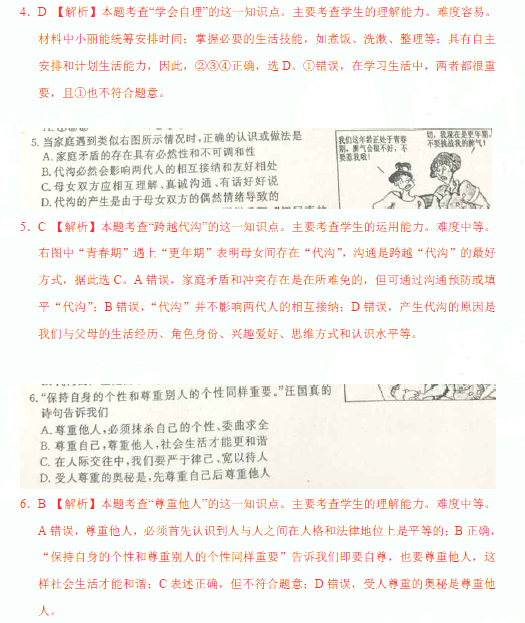 4. D 【解析】本题考查“学会自理”的这一知识点。主要考查学生的理解能力。难度容易。
材料中小丽能统筹安排时间；掌握必要的生活技能，如煮饭、洗漱、整理等；具有自主
安排和计划生活能力，因此，②③④正确，选 D。①错误，在学习生活中，两者都很重
要，且①也不符合题意。
5. 当家庭遇到类似右图所示情况时,正确的认识或做法是
A. 家庭矛盾的存在具有必然性和不可调和性
B. 代沟必然会影响两代人的相互接纳和友好相处
C. 母女双方应相互理解、真诚沟通、有话好好说
D. 代沟的产生是由于母女双方的偶然情绪导致的
我们这年龄正处于青春
期，脾气会很不好，不
要惹我哦！
切，我现在是更年期，
不要挑战我的脾气！
5. C 【解析】本题考查“跨越代沟”的这一知识点。主要考查学生的运用能力。难度中等。
右图中“青春期”遇上“更年期”表明母女间存在“代沟”，沟通是跨越“代沟”的最好
方式，据此选 C。A 错误，家庭矛盾和冲突存在是在所难免的，但可通过沟通预防或填
平“代沟”；B 错误，“代沟”并不影响两代人的相互接纳；D 错误，产生代沟的原因是
我们与父母的生活经历、角色身份、兴趣爱好、思维方式和认识水平等。
6. “保持自身的个性和尊重别人的个性同样重要。”汪国真的
诗句告诉我们
A. 尊重他人,必须抹杀自己的个性、委曲求全
B. 尊重自己,尊重他人,社会生活才能更和谐
C. 在人际交往中,我们要严于律己、宽以待人
D. 受人尊重的奥秘是,先尊重自己后尊重他人
6. B 【解析】本题考查“尊重他人”的这一知识点。主要考查学生的理解能力。难度中等。
A 错误，尊重他人，必须首先认识到人与人之间在人格和法律地位上是平等的；B 正确，
“保持自身的个性和尊重别人的个性同样重要”告诉我们即要自尊，也要尊重他人，这
样社会生活才能和谐；C 表述正确，但不符合题意；D 错误，受人尊重的奥秘是尊重他
人。